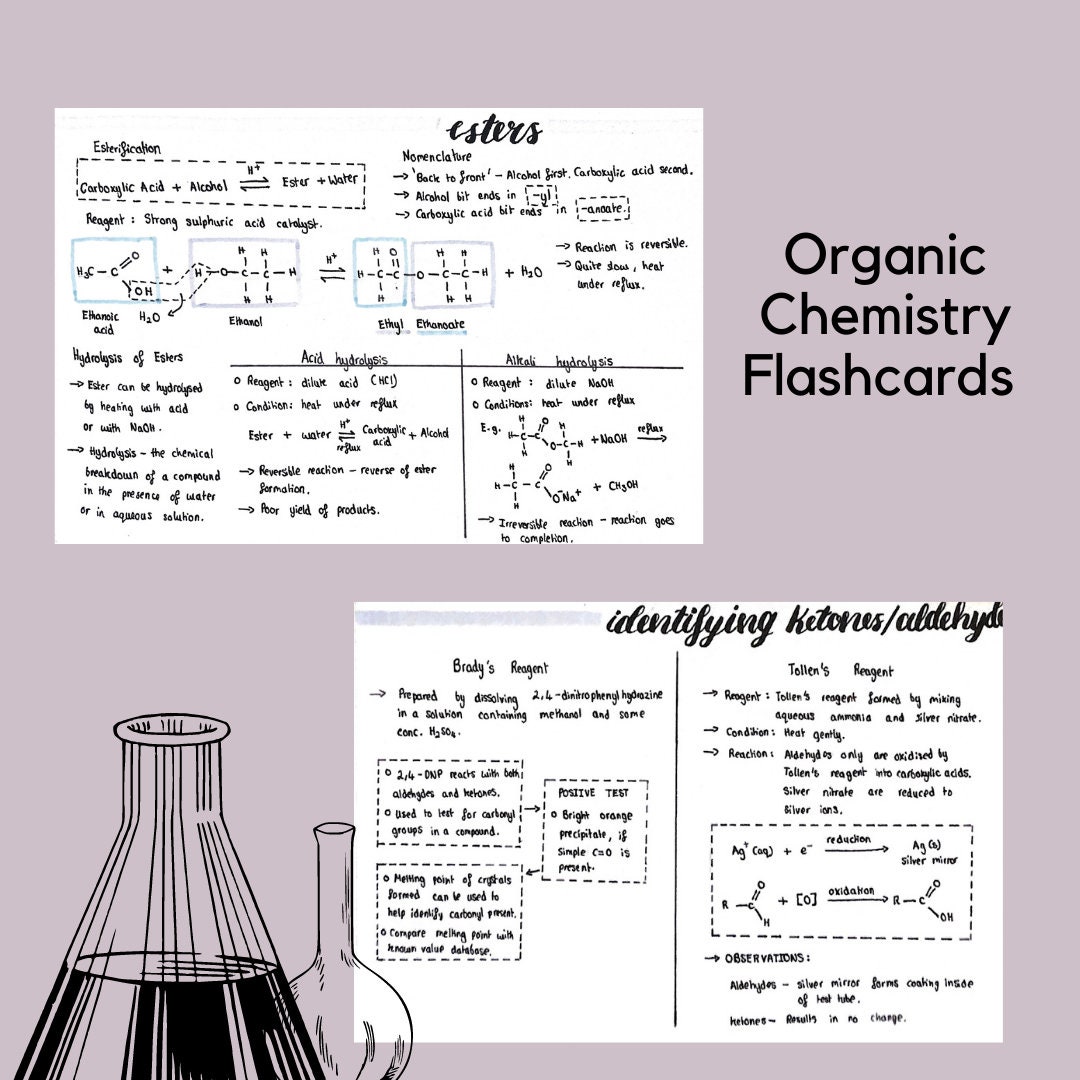 Organic
Chemistry
Flashcards
esters
Esterification
Carboxylic Acid + Alcohol ⇌ Ester + Water
H⁺
Reagent : Strong sulphuric acid catalyst.
Nomenclature
→ 'Back to front' - Alcohol first. Carboxylic acid second.
→ Alcohol bit ends in -yl
→ Carboxylic acid bit ends in -anoate.
H₃C - C O OH + H - O - C - C - H ⇌ H - C - C - O - C - C - H + H₂O
H⁺
H₂O
Ethanoic
acid
Ethanol
Ethyl Ethanoate
→ Reaction is reversible.
→ Quite slow, heat
under reflux.
Hydrolysis of Esters
→ Ester can be hydrolysed
by heating with acid
or with NaOH.
→ Hydrolysis - the chemical
breakdown of a compound
in the presence of water
or in aqueous solution.
Acid hydrolysis
o Reagent : dilute acid (HCl)
o Condition: heat under reflux
Ester + water ⇌ Carboxylic acid + Alcohol
H⁺
reflux
→ Reversible reaction - reverse of ester
formation.
→ Poor yield of products.
Alkali hydrolysis
o Reagent : dilute NaOH
o Conditions: heat under reflux
E.g. H - C - C O O - C - H + NaOH → reflux
H - C - C O O⁻Na⁺ + CH₃OH
→ Irreversible reaction - reaction goes
to completion.
identifying ketones/aldehyde
Brady's Reagent
→ Prepared by dissolving 2,4-dinitrophenylhydrazine
in a solution containing methanol and some
conc. H₂SO₄.
o 2,4-DNP reacts with both
aldehydes and ketones.
o Used to test for carbonyl
groups in a compound.
POSIIVE TEST
o Bright orange
precipitate, if
simple C=O is
present.
o Melting point of crystals
formed can be used to
help identify carbonyl present.
o Compare melting point with
known value database.
Tollen's Reagent
→ Reagent : Tollen's reagent formed by mixing
aqueous ammonia and silver nitrate.
→ Condition: Heat gently.
→ Reaction: Aldehydes only are oxidised by
Tollen's reagent into carboxylic acids.
Silver nitrate are reduced to
silver ions.
Ag⁺(aq) + e⁻ → Ag(s)
reduction
silver mirror
R - C O H + [O] → R - C O OH
oxidation
→ OBSERVATIONS:
Aldehydes - silver mirror forms coating inside
of test tube.
ketones - Results in no change.